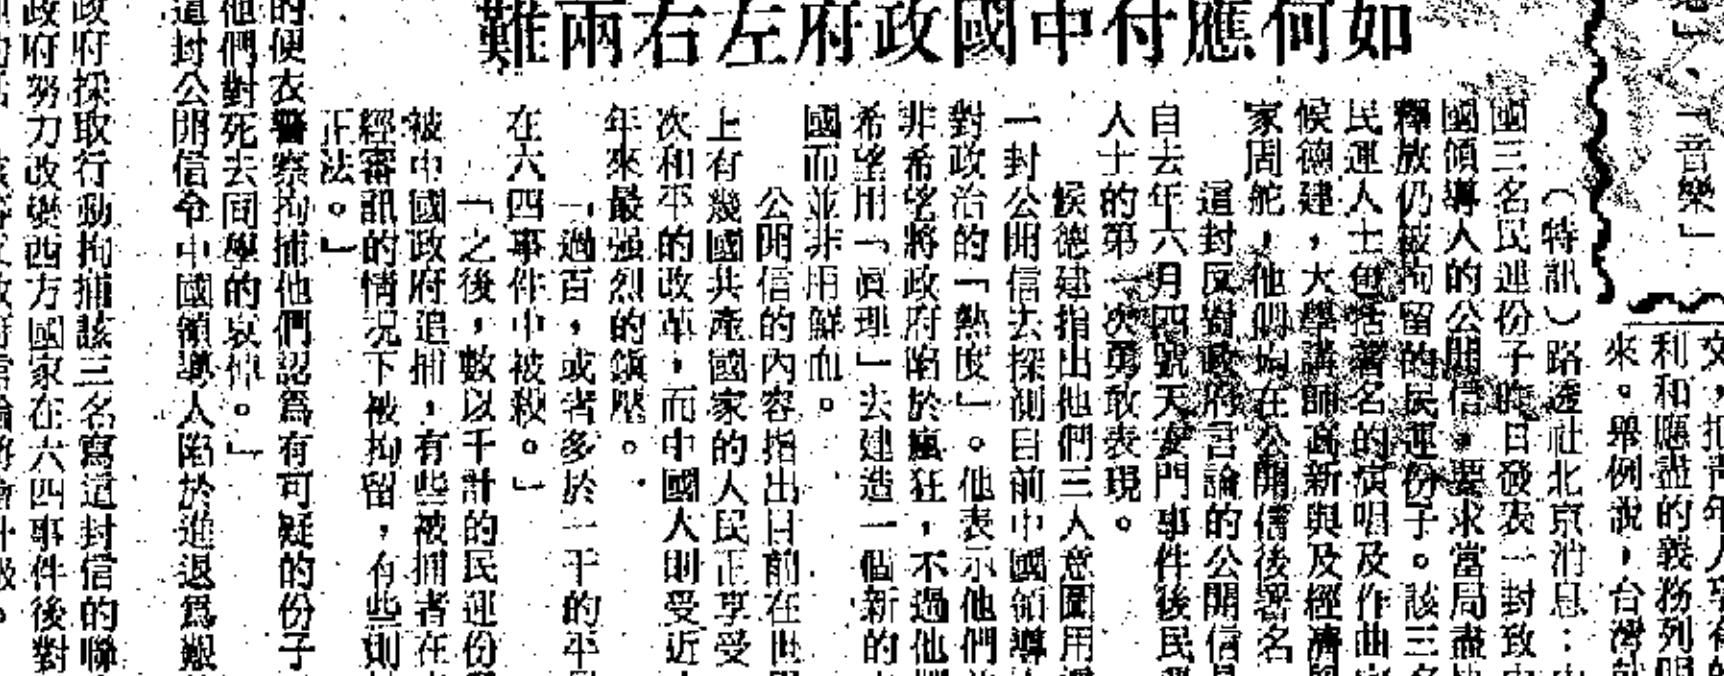 如何應付中國政府左右兩難
「音樂」
利和應盡的義務列明
來。舉例說，台灣
（特訊）路透社北京消息：
國三名民運份子昨日發表一封致
國領導人的公開信，要求當局盡
釋放仍被拘留的民運份子。該三名
民運人士包括著名的演唱及作曲家
候德建，大學講師高新與及經濟
家周舵，他們均在公開信後署名
這封反對政府言論的公開信是
自去年六月四號天安門事件後民
人士的第一次勇敢表現。
候德建指出他們三人意圖用
一封公開信去探測目前中國領導
對政治的「熱度」。他表示他們
非希望將政府陷於瘋狂，不過他們
希望用「眞理」去建造一個新的
國而並非用鮮血。
公開信的內容指出目前在世
上有幾國共產國家的人民正享受
次和平的改革，而中國人則受近
年來最强烈的鎭壓。
「過百，或者多於一千的平
在六四事件中被殺。」
「之後，數以千計的民運份
被中國政府追捕，有些被捕者在
經審訊的情况下被拘留，有些則
正法。」
的便衣警察拘捕他們認爲有可疑的份子
他們對死去同學的哀悼。」
這封公開信令中國領導人陷於進退爲艱
政府採取行動拘捕該三名寫這封信的聯
政府努力改變西方國家在六四事件後對